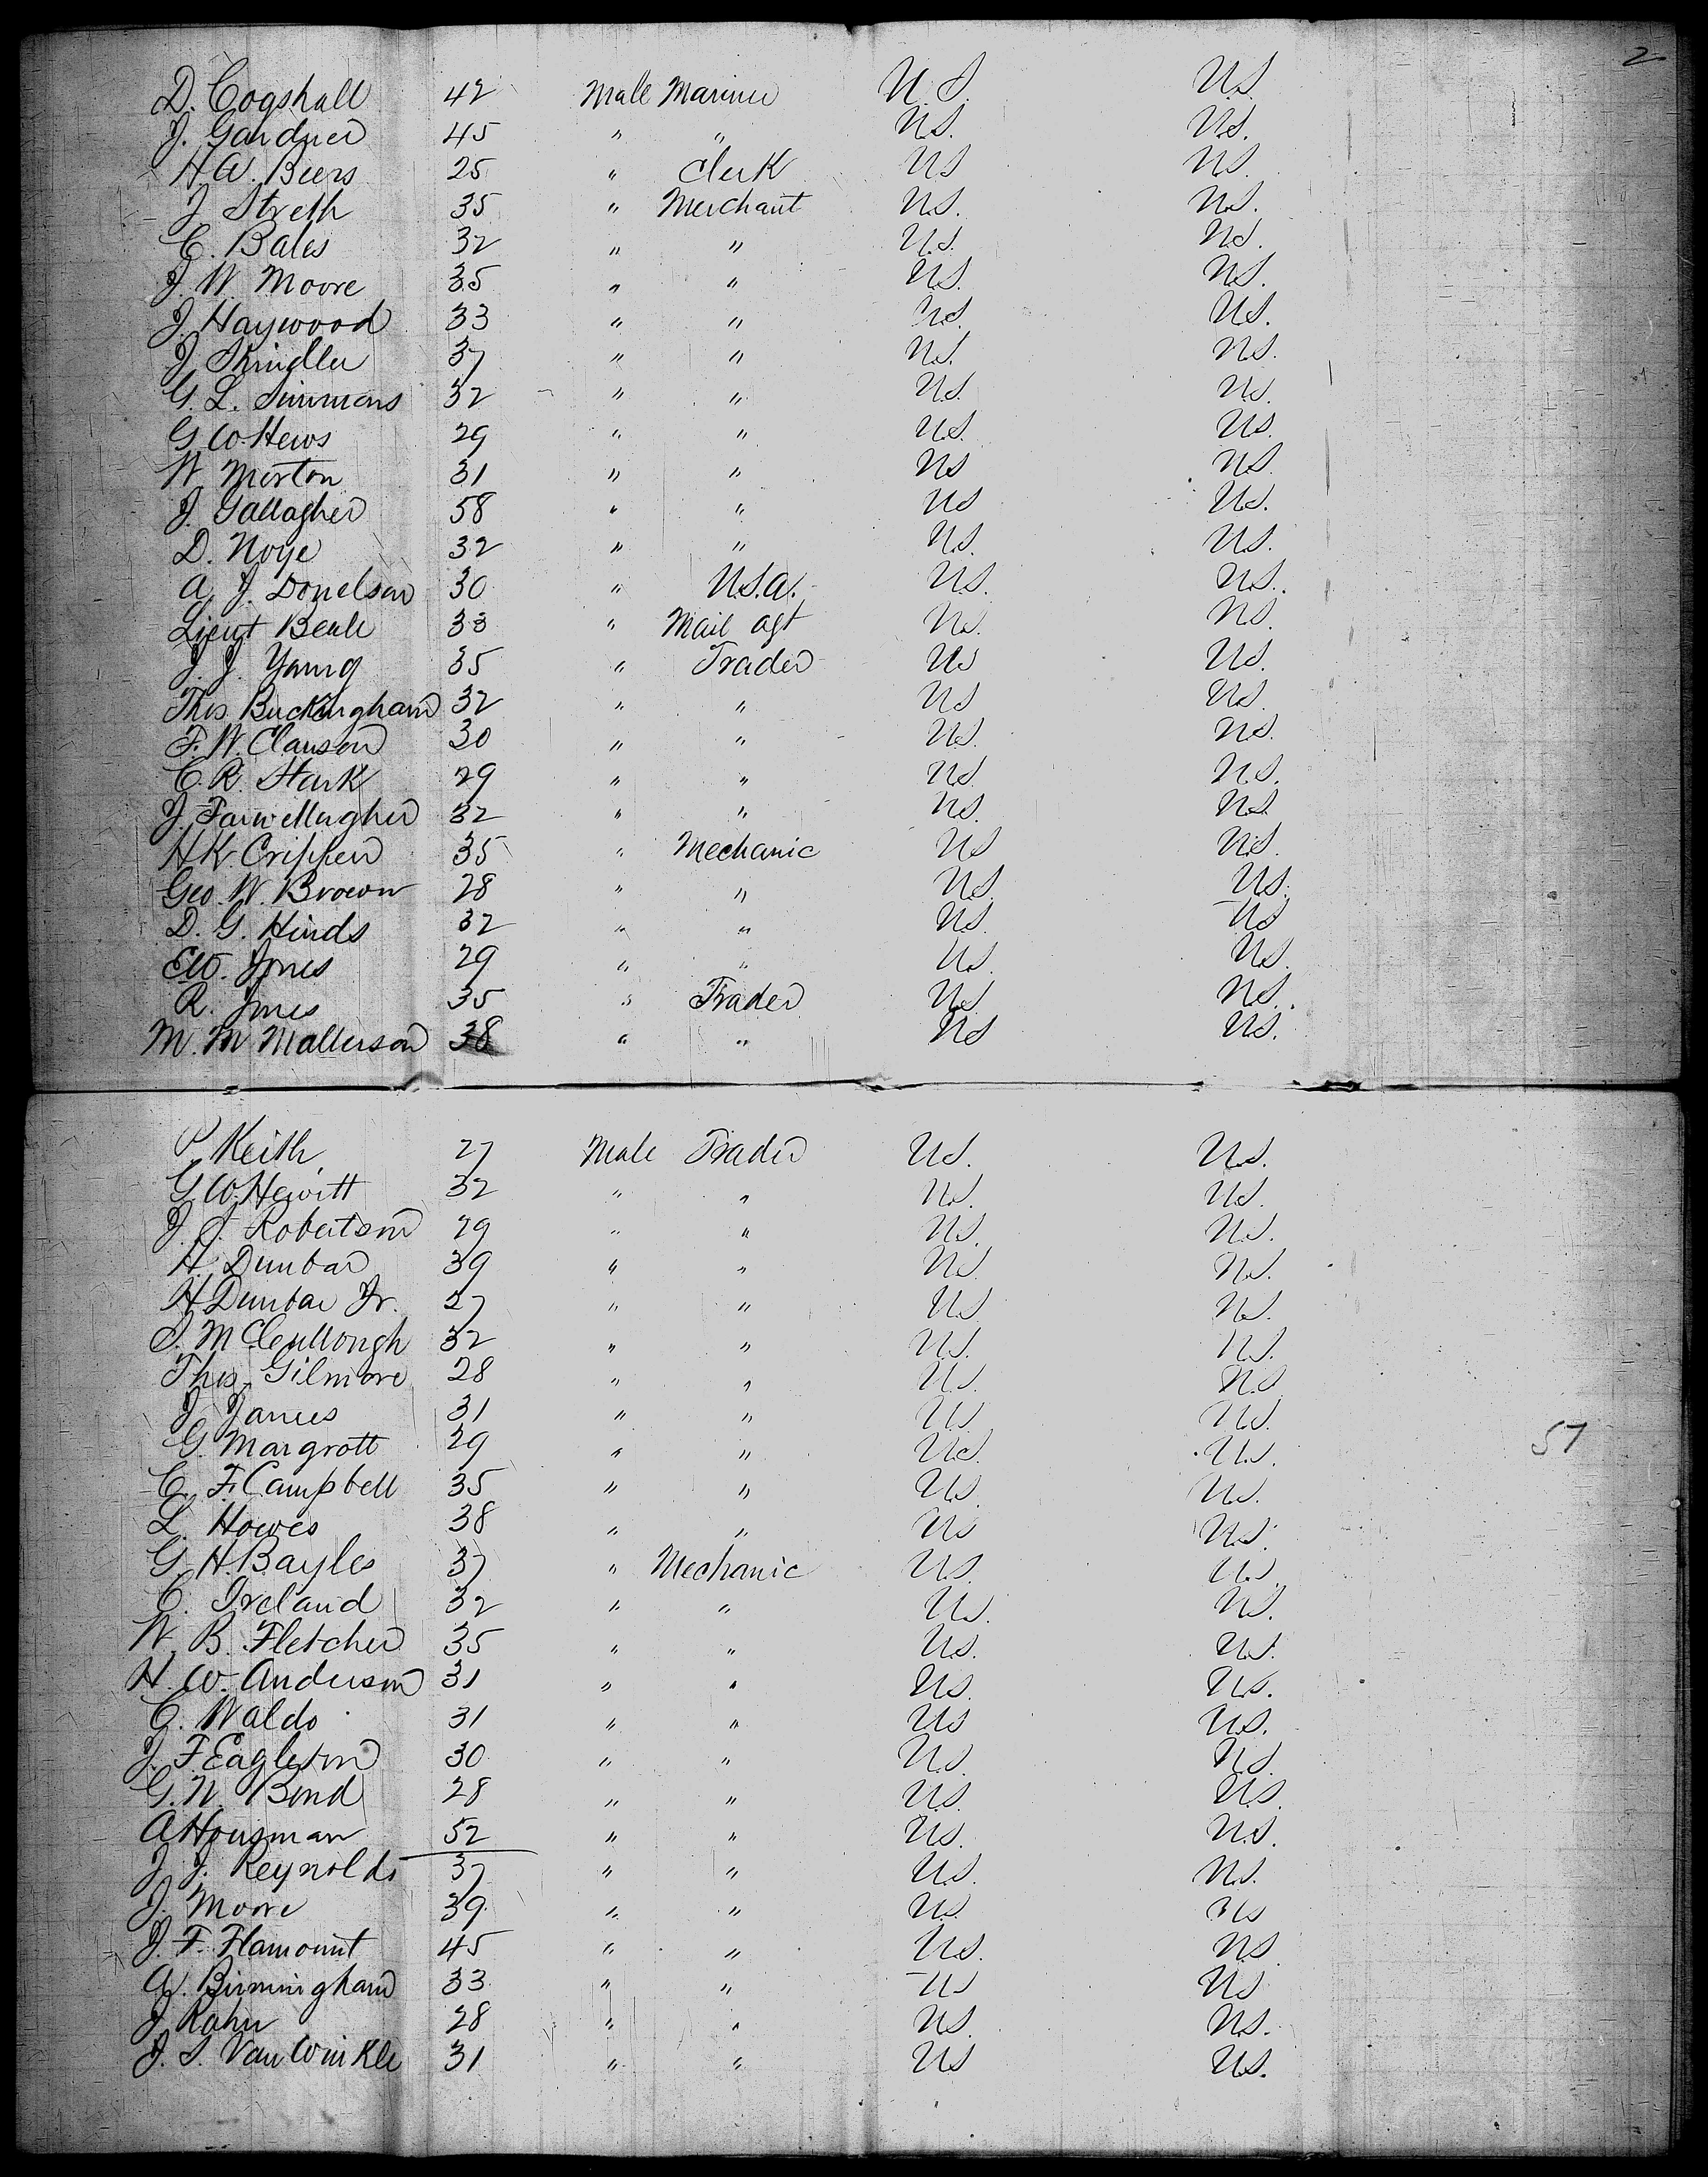 2
D. Cogshall 42 Male Mariner U.S. U.S.
J. Gardner 45 " " U.S. U.S.
H W. Beers 25 " Clerk US U.S.
J Streth 35 " Merchant U.S. U.S.
C. Bales 32 " " U.S. U.S.
J. W Moore 35 " " U.S. U.S.
J Haywood 33 " " U.S. U.S.
J Shindler 37 " " U.S. U.S.
G. L. Simmons 32 " " U.S. U.S.
G W. Hews 29 " " U.S. U.S.
W Morton 31 " " US U.S.
J. Gallagher 58 " " US U.S.
D. Noye 32 " " U.S. U.S.
A J. Donelson 30 " U.S.A. U.S. U.S.
Lieut Beale 33 " Mail agt U.S. U.S.
J. J. Young 35 " Trader US U.S.
Thos. Buckingham 32 " " US U.S.
F. W. Clauson 30 " " U.S. U.S.
C. R. Stark 29 " " U.S. U.S.
J. 32 " " U.S. U.S.
H K Crippen 35 " Mechanic US U.S.
Geo. W. Brown 28 " " U.S. U.S.
D. G. Hinds 32 " " U.S. US
E W. Jones 29 " " U.S. U.S.
R. Jones 35 " Trader U.S. U.S.
M. M Matterson 38 " " US U.S.
P Keith 27 Male Trader U.S. U.S.
G W. Hewitt 32 " " U.S. U.S.
J. S. Robertson 29 " " U.S. U.S.
H Dunbar 39 " " U.S. U.S.
H Dunbar Jr. 27 " " U.S. U.S.
J. McCullough 32 " " U.S. U.S.
Thos. Gilmore 28 " " U.S. U.S.
J James 31 " " U.S. U.S.
G. Margrott 29 " " U.S. U.S.
57
C. F. Campbell 35 " " U.S. U.S.
L. Howes 38 " " US U.S.
G. H. Bayles 37 " Mechanic U.S. U.S.
C. Ireland 32 " " U.S. U.S.
W B. Fletcher 35 " " U.S. U.S.
H. W. Anderson 31 " " U.S. U.S.
C. Waldo 31 " " US U.S.
J. F. Eagleton 30 " " U.S. U.S.
G. N. Bond 28 " " U.S. U.S.
A Housman 52 " " U.S. U.S.
J J. Reynolds 37 " " U.S. U.S.
J. Moore 39 " " U.S. US
J. F. Flamount 45 " " U.S. US
A. Birmingham 33 " " US US
J Rahn 28 " " U.S. U.S.
J. S. Van Winkle 31 " " US U.S.